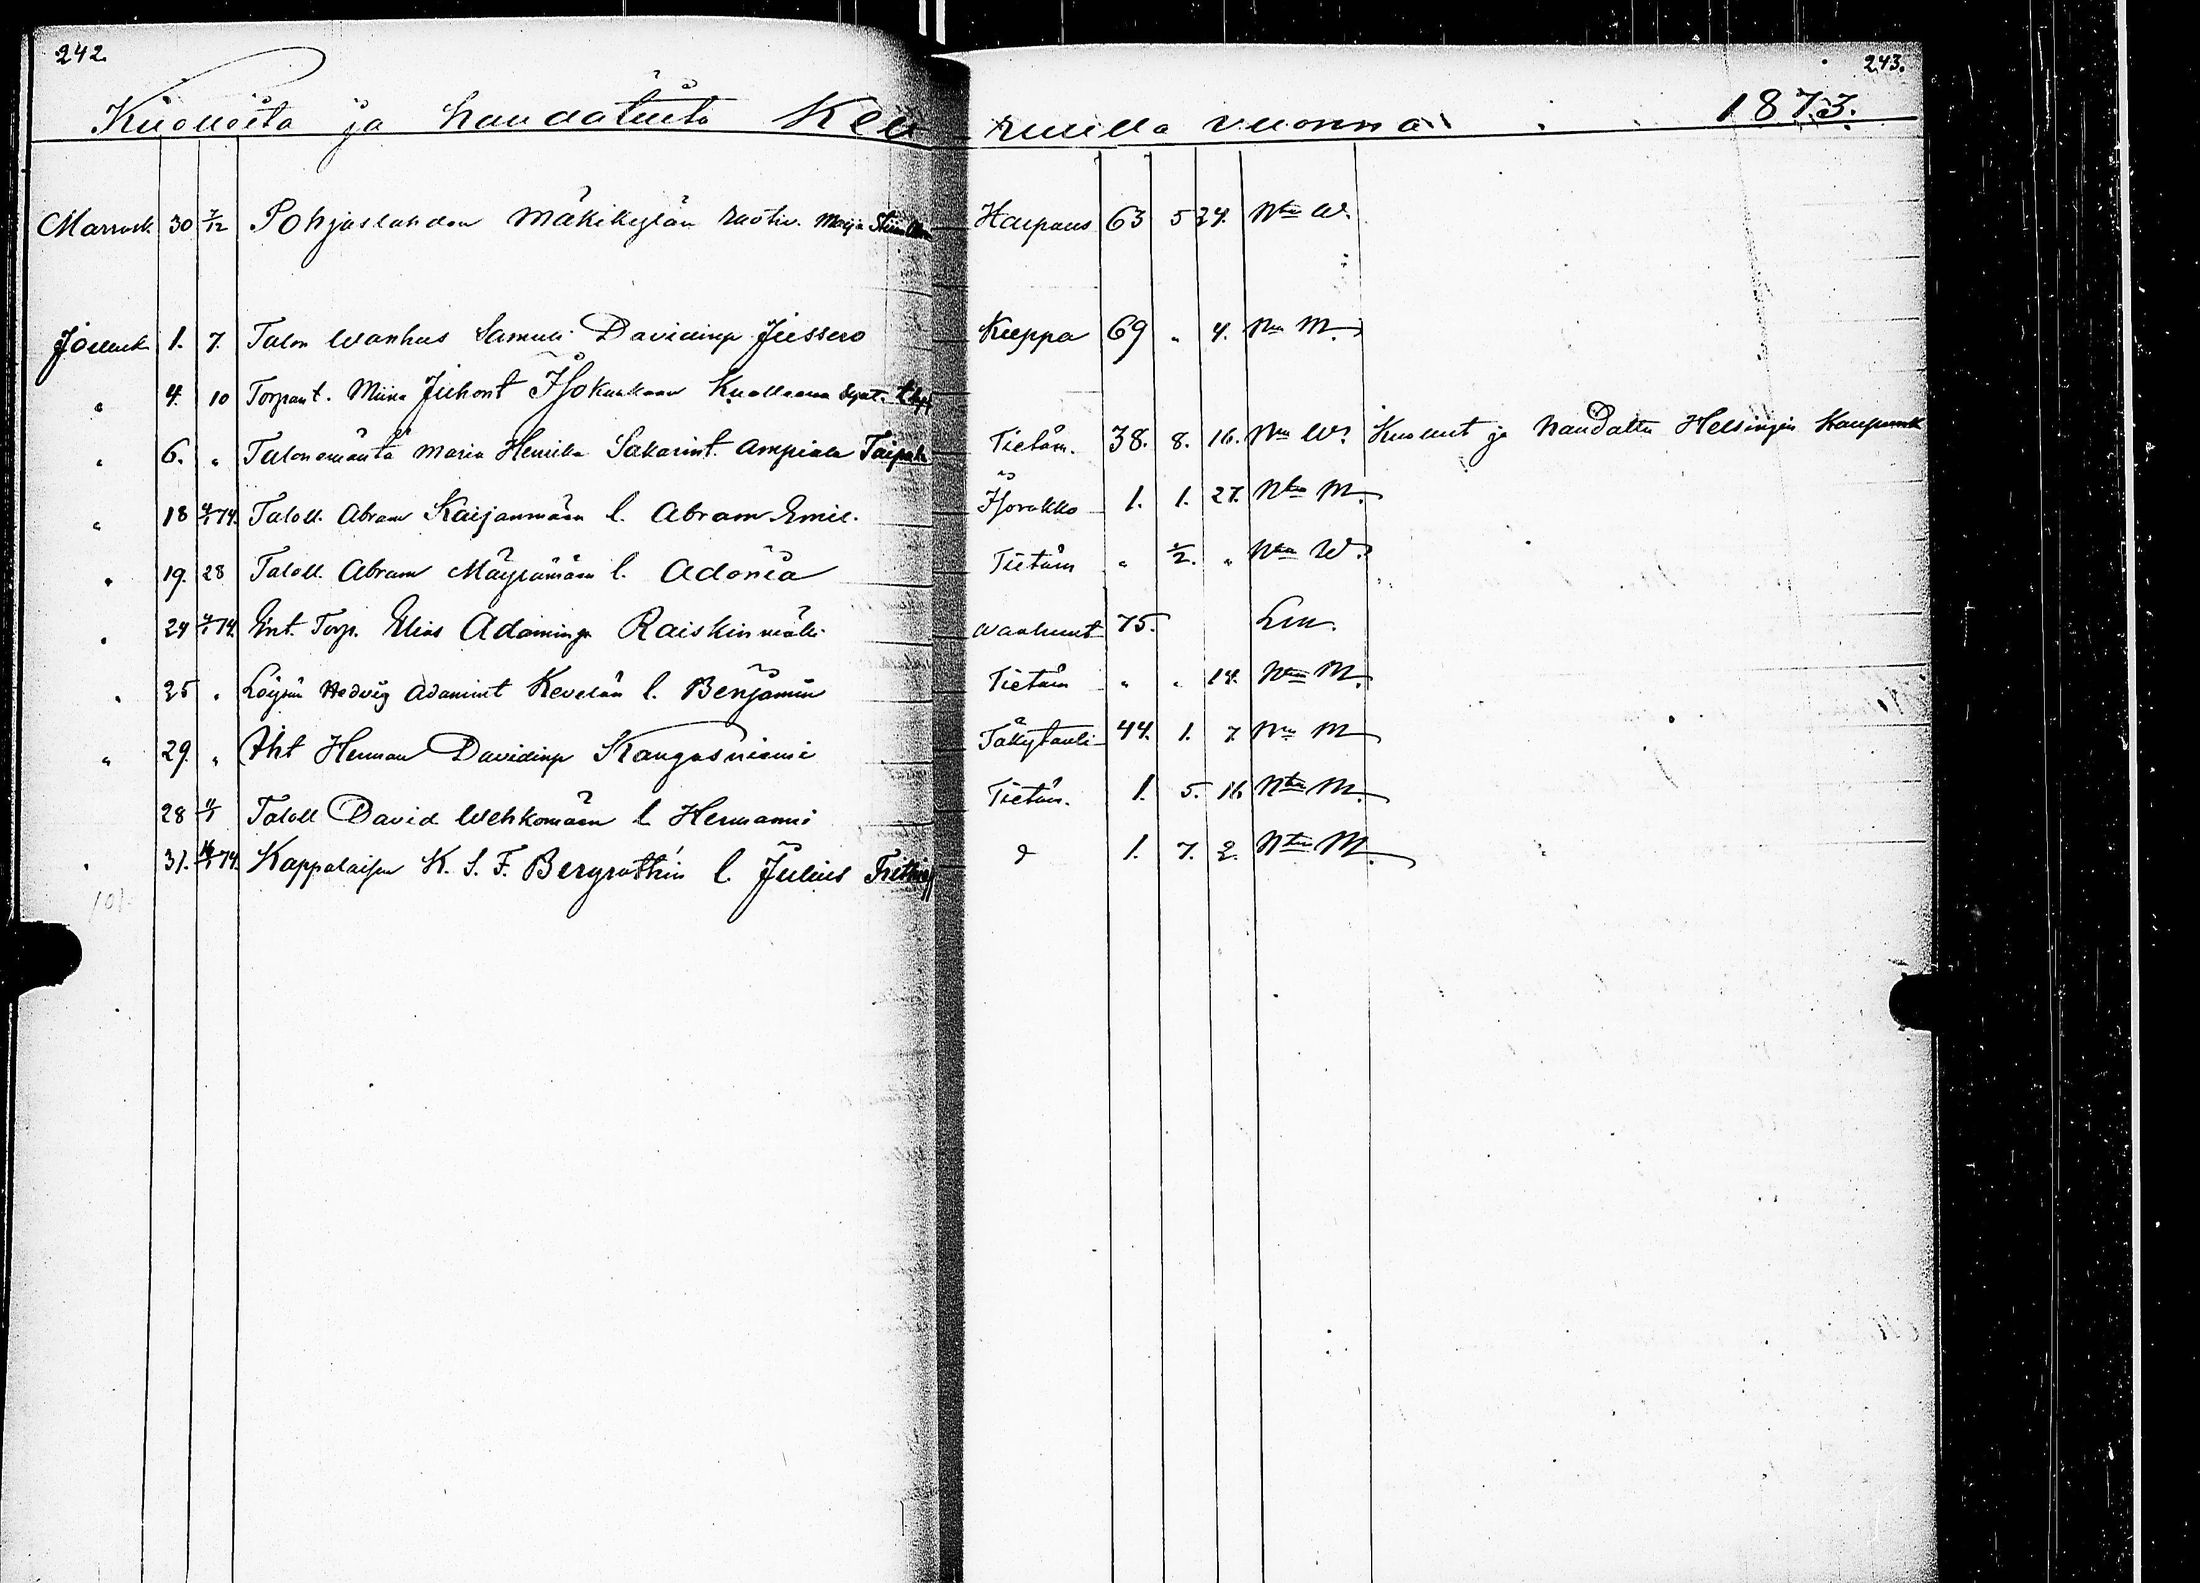 242. 243.
Kuolleita ja haudatuita Keu ruulla vuonna 1873.
Marrask 30 7/12 Pohjaslahden Mäkikylän Maija Haipuus 63 5 24. Nen W.
Jouluuk 1. 7. Talon wanhus Samuli Davidinp. Jussero Kuppa 69 " 4. Nen M.
" 4. 10 Torpant. Miina Juhont Isokuukan Kuollaana
" 6. " Talonemäntä Maria Henrika Sakarint. Ampiala Taipale Tietäm. 38. 8. 16. Nen W. Kuollut ja haudattu Helsingin Kaupunk
" 18 4/1 74. Taloll. Abram Kaijanmäen l. Abram Emil. Isorokko 1. 1. 27. Nten M.
" 19. 28 Taloll. Abram Mäyrämäen l. Adonia Tietäm " 1/2. " Nten W.
" 24 4/1 74. Ent. Torp. Elias Adaminp. Raiskinmäki wanhuut 75. Len.
" 25 " Löysän Hedvig Adamint Kevelän l. Benjamin Tietäm " " 14. Nten M.
" 29. " Iht Herman Davidinp Kangasniemi Täkytauti 44. 1. 7 Nen M
28 11/1 Taloll David Wehkomäen l Hermanni Tietäm. 1. 5. 16 Nten M.
" 31. 74. Kappalaisen K. S. F. Bergrothin l. Julius d 1. 7. 2. Nten M.
101